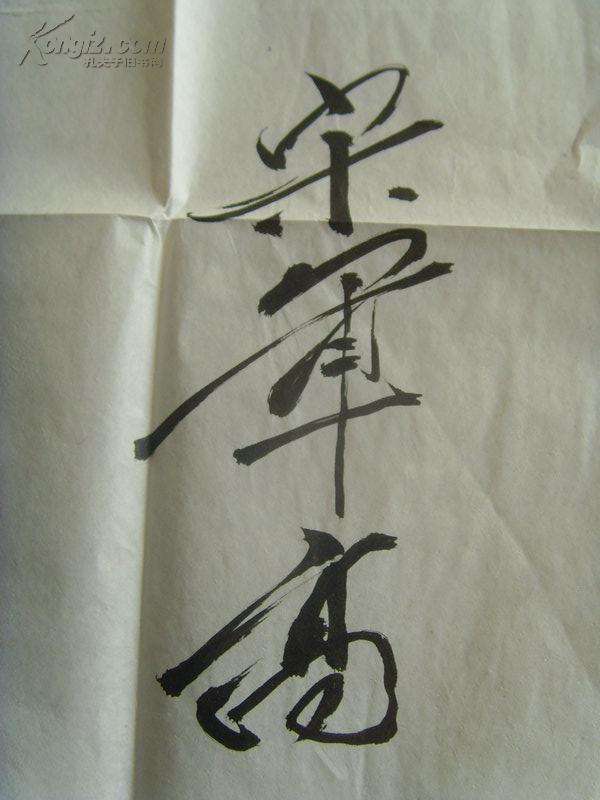 Kongfz.com
孔夫子旧书网
宋軍高